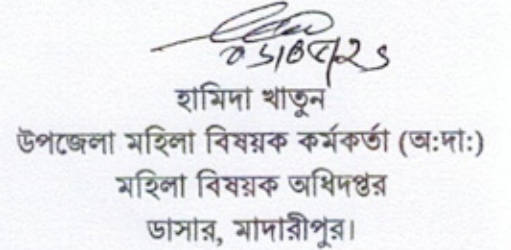 হামিদা খাতুন
উপজেলা মহিলা বিষয়ক কর্মকর্তা (অ:দা:)
মহিলা বিষয়ক অধিদপ্তর
ডাসার, মাদারীপুর।